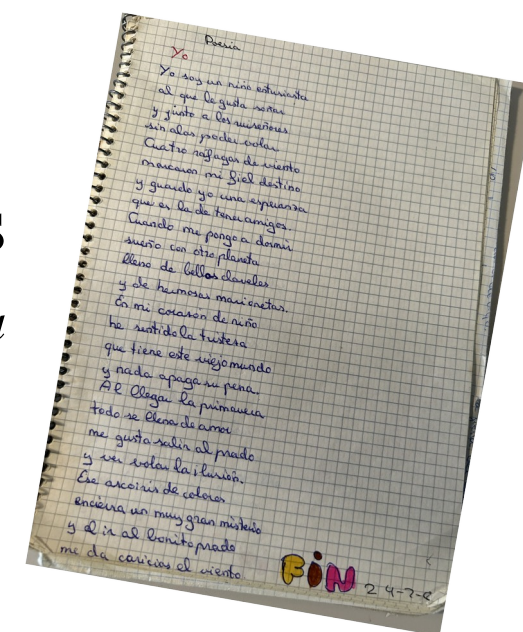 Poesía
Yo
Yo soy un niño entusiasta
al que le gusta soñar
y junto a los ruiseñores
sin alas poder volar
Cuatro ráfagas de viento
marcaron mi fiel destino
y guardo yo una esperanza
que es la de tener amigos.
Cuando me pongo a dormir
sueño con otro planeta
lleno de bellos claveles
y de hermosas marionetas.
En mi corazón de niño
he sentido la tristeza
que tiene este viejo mundo
y nada apaga su pena.
Al llegar la primavera
todo se llena de amor
me gusta salir al prado
y ver volar la ilusión.
Ese arcoiris de colores
encierra un muy gran misterio
y al ir al bonito prado
me da caricias el viento
FIN